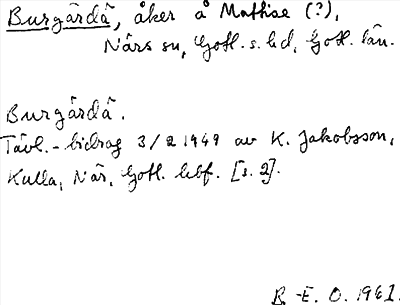 Burgårdå, åker å Mathise (?),
Närs sn, Gotl. s. hd, Gotl. län.
Burgårdå.
Tävl.-bidrag 3/2 1949 av K. Jakobsson,
Kulla, När, Gotl. hbf. [s. 2].
B.-E. O. 1961.